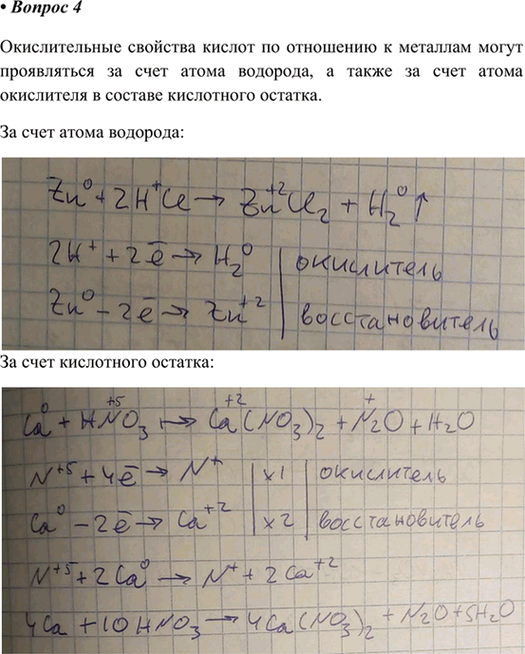 • Вопрос 4
Окислительные свойства кислот по отношению к металлам могут
проявляться за счет атома водорода, а также за счет атома
окислителя в составе кислотного остатка.
За счет атома водорода:
Zn⁰ + 2H⁺Cl → Zn⁺²Cl₂ + H₂⁰↑
2H⁺ + 2ē → H₂⁰ | окислитель
Zn⁰ − 2ē → Zn⁺² | восстановитель
За счет кислотного остатка:
Ca⁰ + HN⁺⁵O₃ → Ca⁺²(NO₃)₂ + N⁺₂O + H₂O
N⁺⁵ + 4ē → N⁺ | x1 | окислитель
Ca⁰ − 2ē → Ca⁺² | x2 | восстановитель
N⁺⁵ + 2Ca⁰ → N⁺ + 2Ca⁺²
4Ca + 10HNO₃ → 4Ca(NO₃)₂ + N₂O + 5H₂O